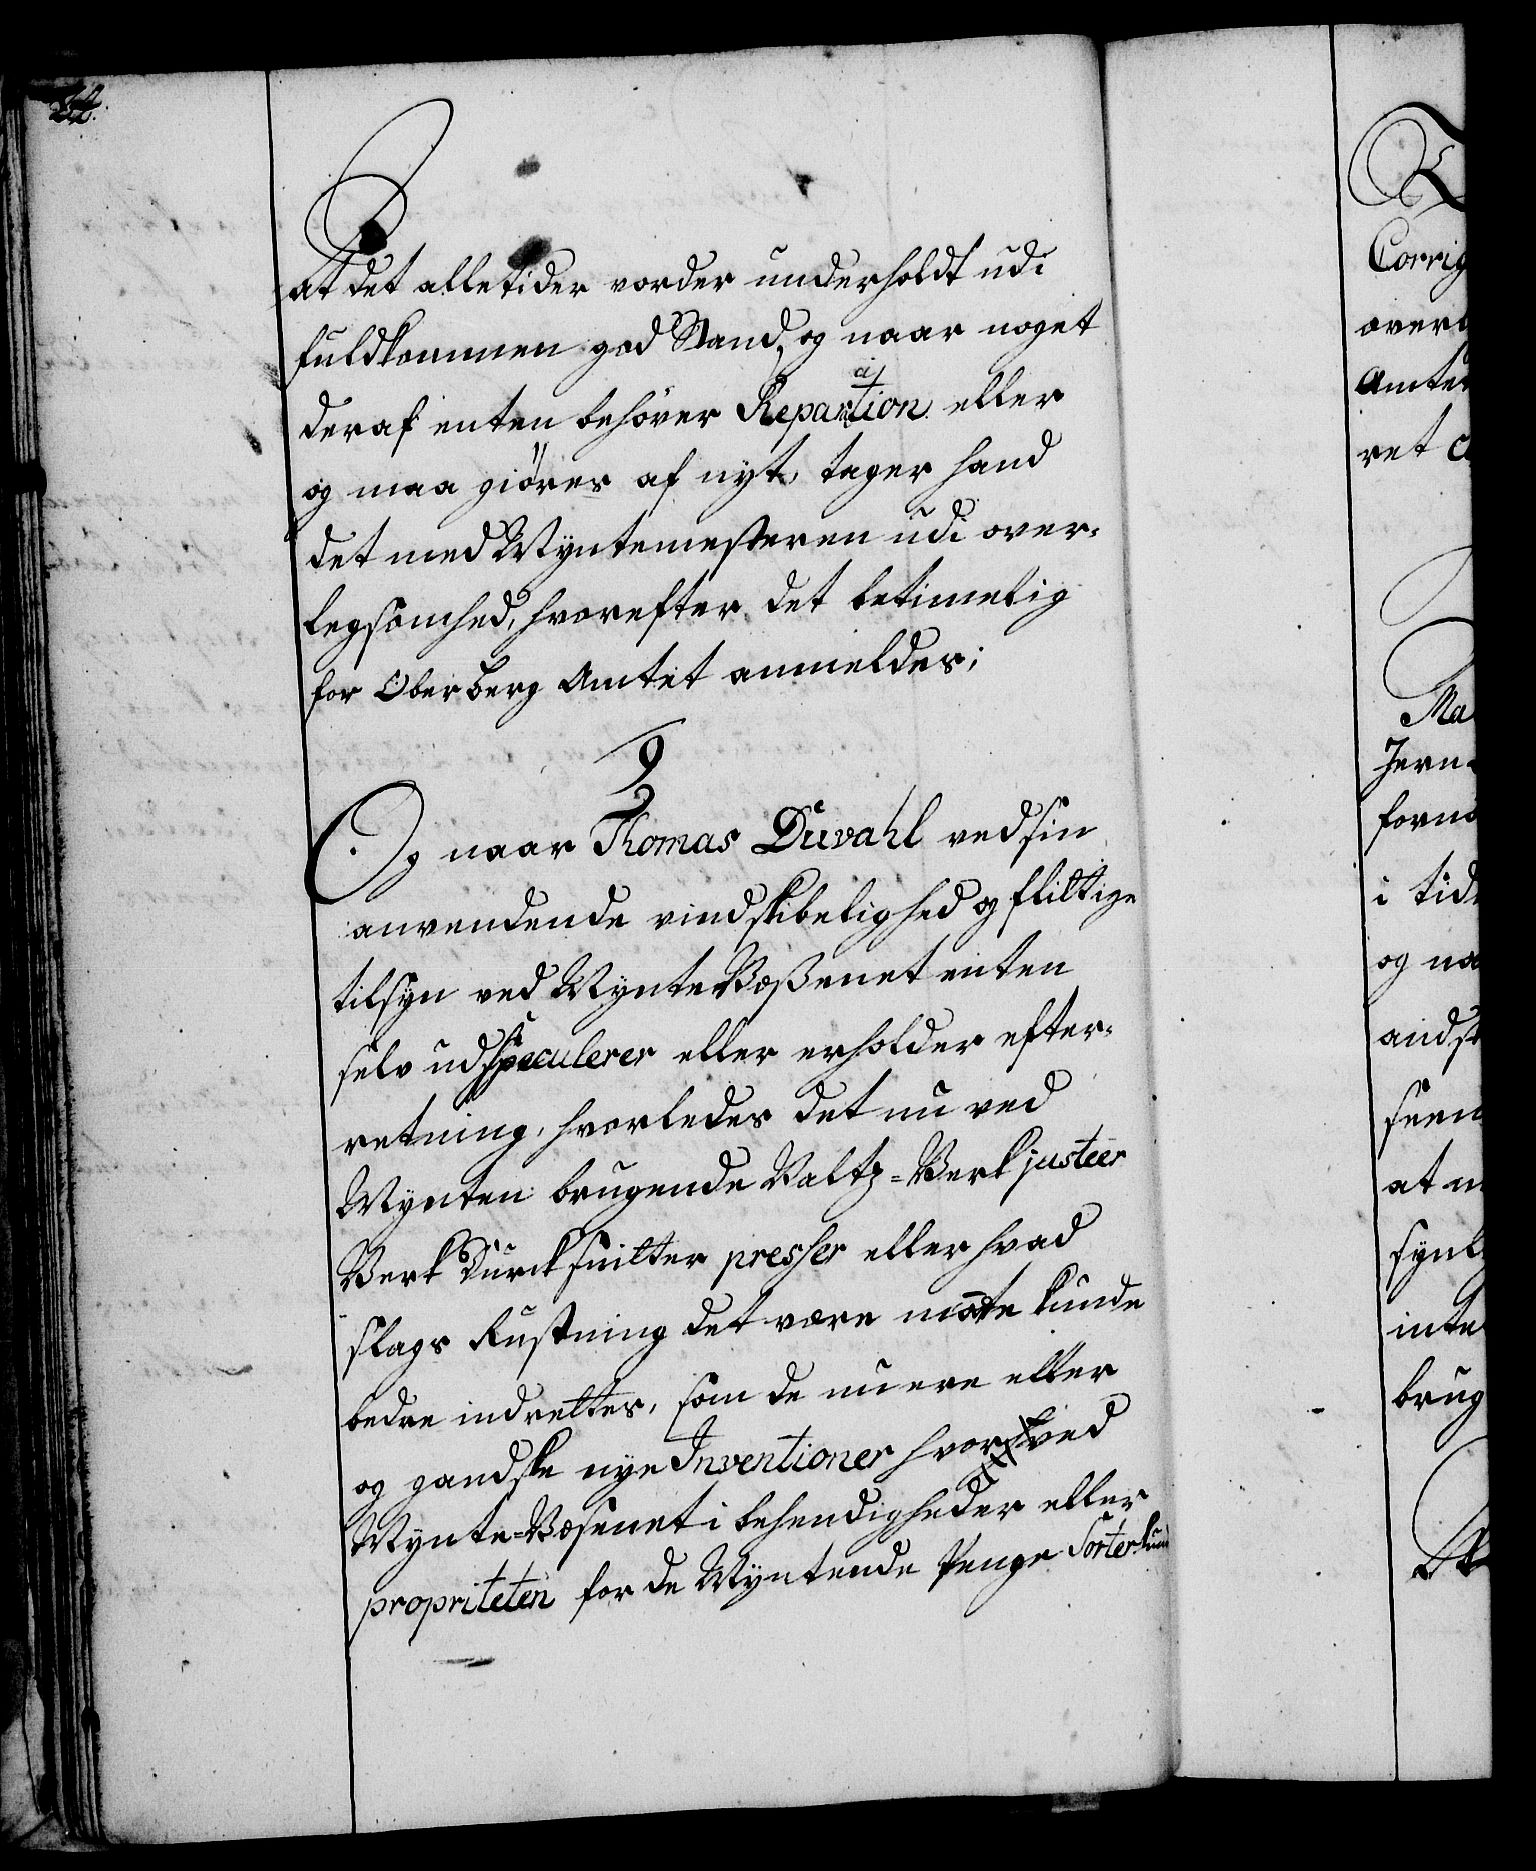 at det alletider vorder underholdt udi
fuldkommen god Stand, og naar noget
deraf enten behöver Reparation eller
og maa giöres af nyt, tager hand
det med Myntemesteren udi over-
legsomhed, hvorefter det betimelig
for Oberberg Amtet anmeldes;
9
Og naar Thomas Duvahl ved sin
anvendende vindskibelighed og flittige
tilsyn ved Mynte Væßenet enten
selv udspeculerer eller erholder efter-
retning, hvorledes det nu ved
Mynten brugende Valtz-Verk justeer
Verk Durcksnitter presser eller hvad
slags Rustning det være motte kunde
bedre indrettes, som de nu ere eller
og gandske nye Inventioner hvor ved
Mynte-Væsenet i behendigheder eller
propriteten for de Myntende Penge Sorter kund
Corrig
over
Amte
ret
Ma
Jern
forn
i tid
og na
andst
seen
at
synl
inte
brug